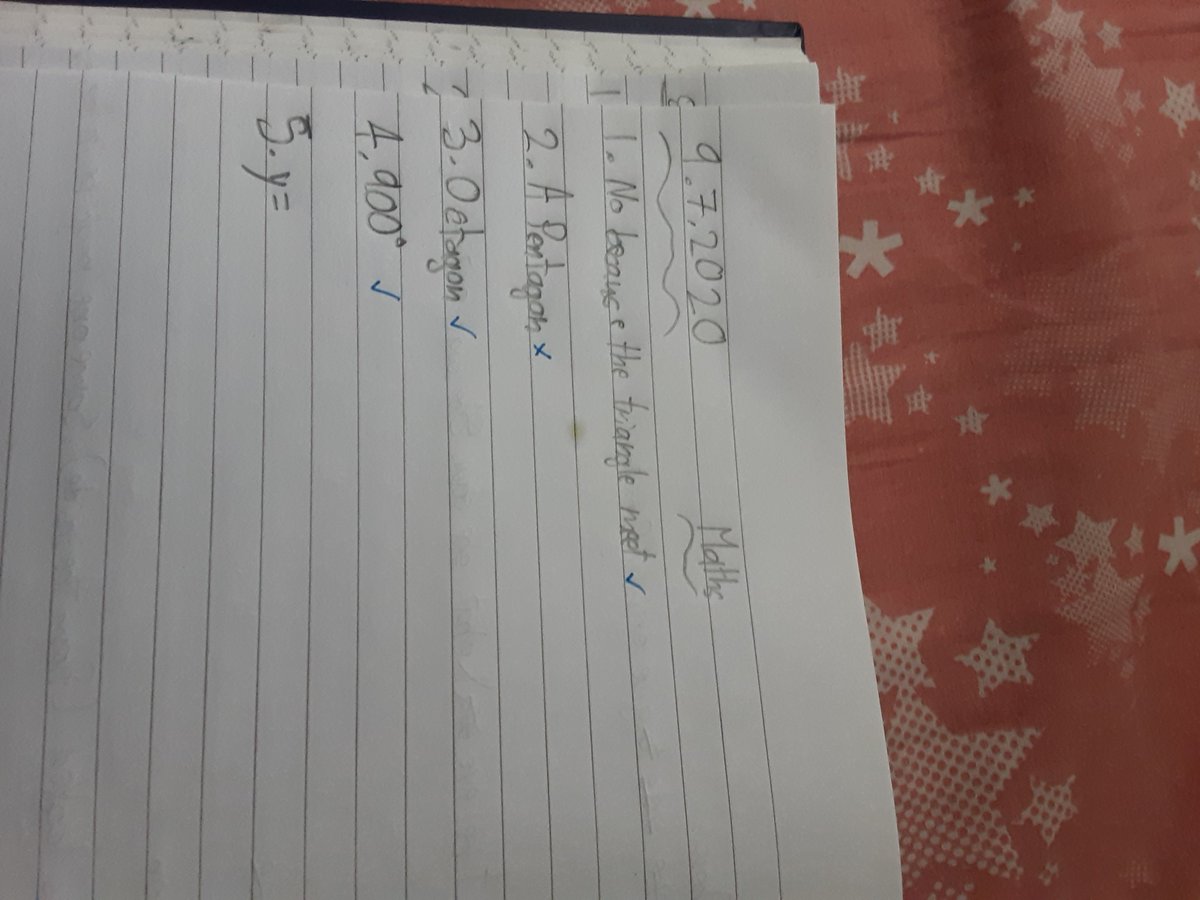 9.7.2020 Maths
1. No because the triangle meet ✓
2. A Pentagon ×
3. Octagon ✓
4. 900° ✓
5. y=